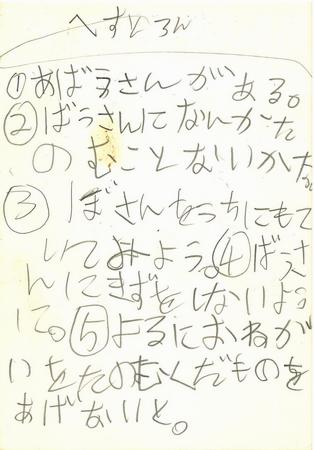 へすとろん
①あばうさんがある。
②ばうさんになんかた
のむことないかな
③ばさんをうちにもて
いてみよう。④ばうさ
んにきずをしないよう
に。⑤よるにおねが
いをたのむくだものを
あげないと。